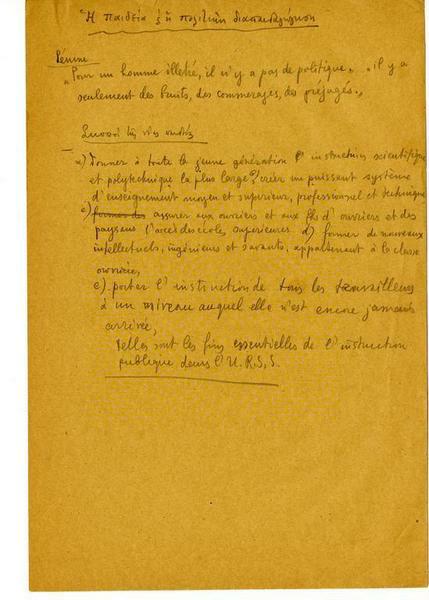 Ἡ παιδεία ἢ ἡ πολιτικὴ διαπαιδαγώγηση
Lénine
"Pour un homme illetré, il n'y a pas de politique, "il y a
seulement des bruits, des commerages, des préjugés.,
Σκοποὶ τῆς νέας
a) donner à toute la jeune génération l'instruction scientifique
et polytechnique la plus large, b) créer un puissant système
d'enseignement moyen et superieur, professionel et technique
c) former des assurer aux ouvriers et aux fils d'ouvriers et des
paysans l'accès des écoles superieures. d) former de nouveaux
intellectuels, ingénieurs et savants, appartenant à la classe
ouvrière,
e) porter l'instruction de tous les travailleurs
à un niveau auquel elle n'est encore jamais
arrivée,
telles sont les fins essentielles de l'instruction
publique dans l'U.R.S.S.